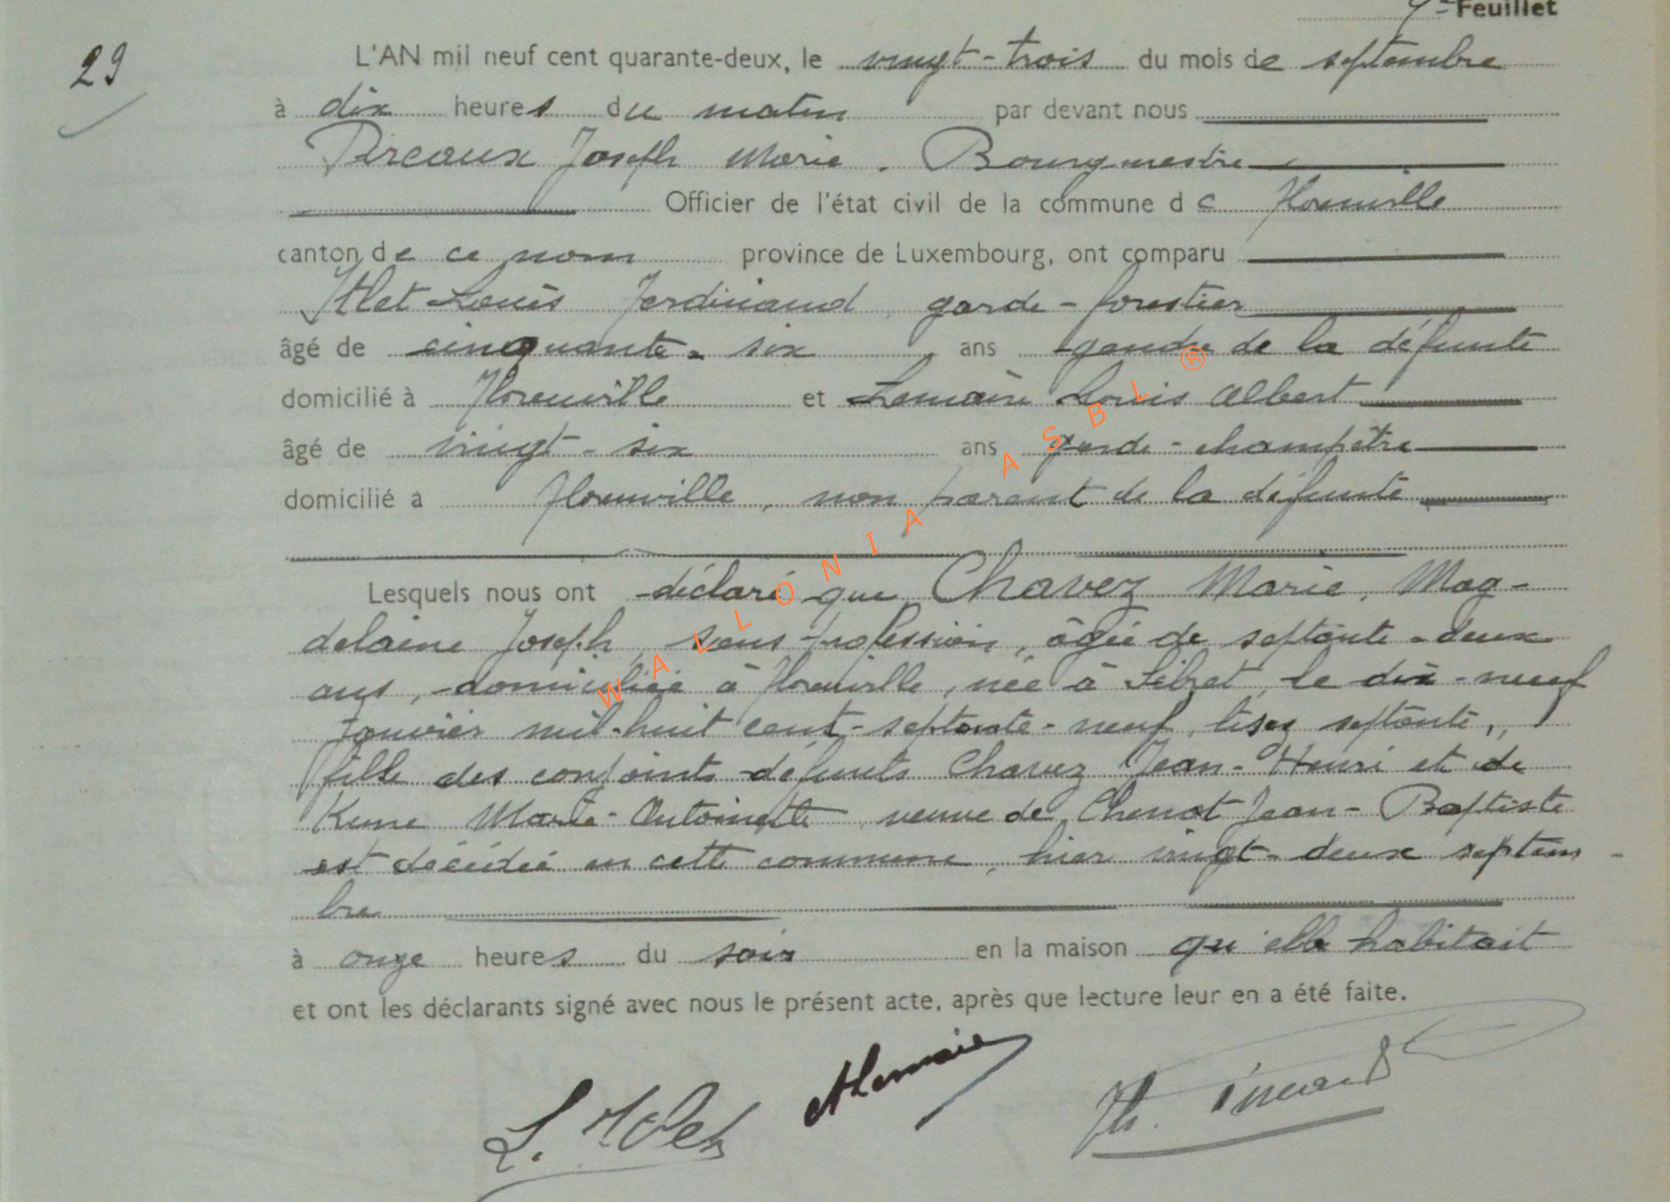 Feuillet
29
L'AN mil neuf cent quarante-deux, le vingt-trois du mois de septembre
à dix heures du matin par devant nous
Pireaux Joseph Marie, Bourgmestre
Officier de l'état civil de la commune de Florenville
canton de ce nom province de Luxembourg, ont comparu
Louis Ferdinand, garde-forestier
âgé de cinquante-six ans gendre de la défunte
domicilié à Florenville et Lemaire Louis Albert
âgé de vingt-six ans garde-champêtre
domicilié à Florenville, non parent de la défunte
Lesquels nous ont déclaré que Chavez Marie, Mag-
delaine Joseph, sans profession, âgée de septante-deux
ans, domiciliée à Florenville, née à Sibret, le dix-neuf
janvier mil-huit cent-septante-neuf, lisez septante,
fille des conjoints défunts Chavez Jean-Henri et de
Marie-Antoinette, veuve de Chenot Jean-Baptiste
est décédée en cette commune, hier vingt-deux septem-
bre
à onze heures du soir en la maison qu'elle habitait
et ont les déclarants signé avec nous le présent acte, après que lecture leur en a été faite.
ALemaire
WALLONIA ASBL ®